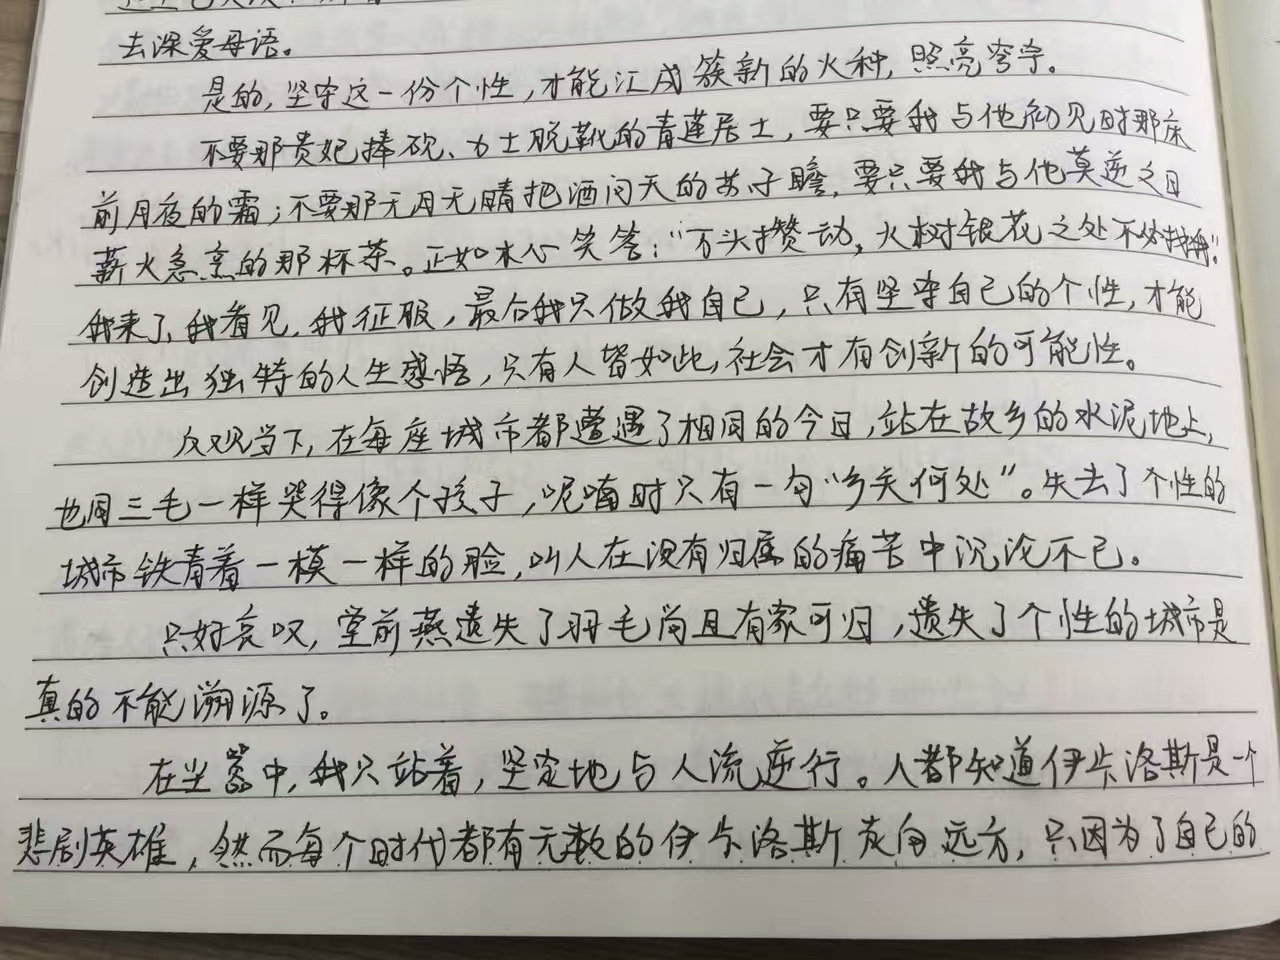 去深爱母语。
是的，坚守这一份个性，才能汇成簇新的火种，照亮穹宇。
不要那贵妃捧砚、力士脱靴的青莲居士，要只要我与他初见时那床
前月夜的霜；不要那无月无晴把酒问天的苏子瞻，要只要我与他莫逆之日
薪火急烹的那杯茶。正如木心笑答：“万头攒动，火树银花之处不必找我”。
我来了，我看见，我征服，最后我只做我自己，只有坚守自己的个性，才能
创造出独特的人生感悟，只有人皆如此，社会才有创新的可能性。
反观当下，在每座城市都遭遇了相同的今日，站在故乡的水泥地上，
也同三毛一样哭得像个孩子，呢喃时只有一句“乡关何处”。失去了个性的
城市铁青着一模一样的脸，叫人在没有归属的痛苦中沉沦不已。
只好哀叹，堂前燕遗失了羽毛尚且有家可归，遗失了个性的城市是
真的不能溯源了。
在尘嚣中，我只站着，坚定地与人流逆行。人都知道伊卡洛斯是一个
悲剧英雄，然而每个时代都有无数的伊卡洛斯 向远方，只因为了自己的